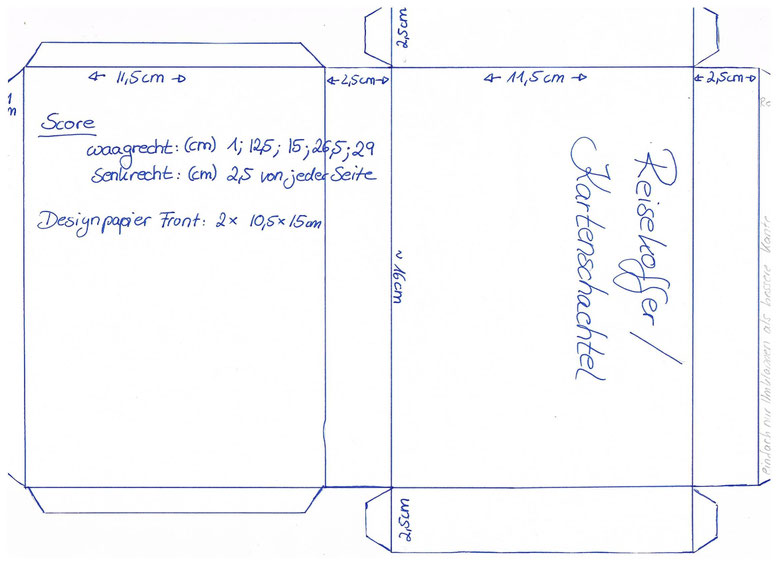 2,5cm
11,5cm
2,5cm
11,5cm
2,5cm
1
Score
waagrecht: (cm) 1; 12,5; 15; 26,5; 29
Senkrecht: (cm) 2,5 von jeder Seite
Designpapier Front: 2x 10,5x15cm
~16cm
Reisekoffer/
Kartenschachtel
einfach nur Umklappen als bessere Kante
2,5cm